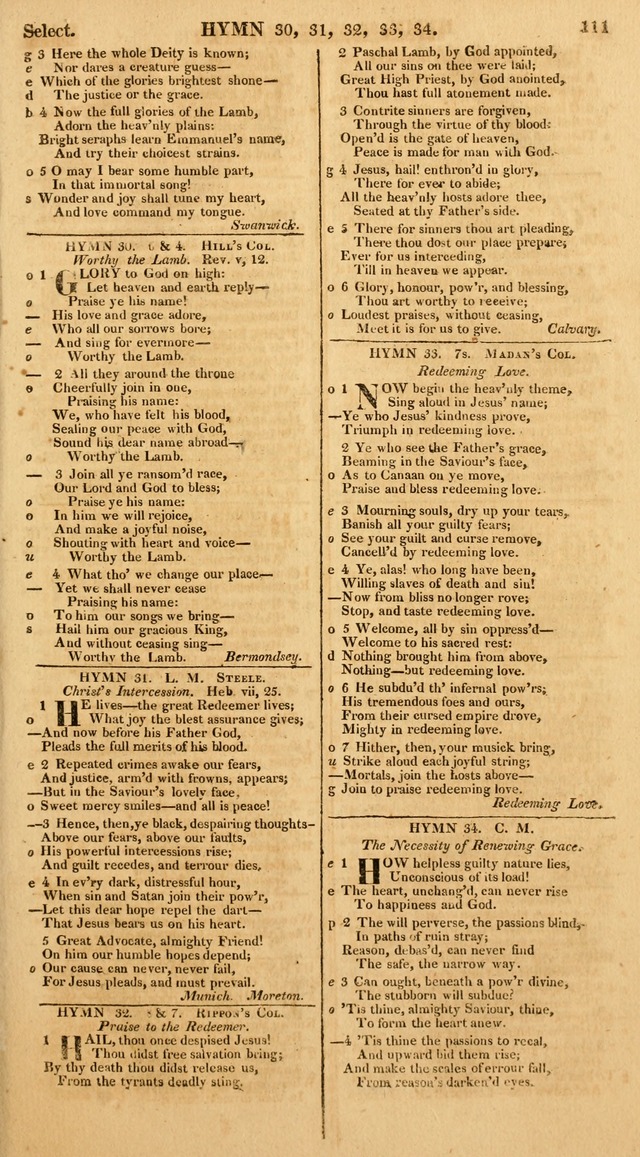 Select. HYMN 30, 31, 32, 33, 34. 111
g 3 Here the whole Deity is known;
e Nor dares a creature guess—
e Which of the glories brightest shone—
d The justice or the grace.
b 4 Now the full glories of the Lamb,
Adorn the heav'nly plains:
Bright seraphs learn Emmanuel's name,
And try their choicest strains.
o 5 O may I bear some humble part,
In that immortal song!
s Wonder and joy shall tune my heart,
And love command my tongue.
Swanwick.
HYMN 30. 6 & 4. HILL'S COL.
Worthy the Lamb. Rev. v, 12.
o 1 GLORY to God on high:
Let heaven and earth reply—
o Praise ye his name!
— His love and grace adore,
e Who all our sorrows bore;
— And sing for evermore—
o Worthy the Lamb.
— 2 All they around the throne
o Cheerfully join in one,
Praising his name:
We, who have felt his blood,
Sealing our peace with God,
Sound his dear name abroad—
o Worthy the Lamb.
— 3 Join all ye ransom'd race,
Our Lord and God to bless;
o Praise ye his name:
o In him we will rejoice,
And make a joyful noise,
o Shouting with heart and voice—
u Worthy the Lamb.
e 4 What tho' we change our place—
— Yet we shall never cease
Praising his name:
o To him our songs we bring—
s Hail him our gracious King,
And without ceasing sing—
Worthy the Lamb. Bermondsey.
HYMN 31. L. M. STEELE.
Christ's Intercession. Heb. vii, 25.
1 HE lives—the great Redeemer lives;
o What joy the blest assurance gives;
—And now before his Father God,
Pleads the full merits of his blood.
e 2 Repeated crimes awake our fears,
And justice, arm'd with frowns, appears;
—But in the Saviour's lovely face,
o Sweet mercy smiles—and all is peace!
—3 Hence, then, ye black, despairing thoughts—
Above our fears, above our faults,
o His powerful intercessions rise;
And guilt recedes, and terrour dies.
e 4 In ev'ry dark, distressful hour,
When sin and Satan join their pow'r,
—Let this dear hope repel the dart—
That Jesus bears us on his heart.
5 Great Advocate, almighty Friend!
On him our humble hopes depend;
o Our cause can never, never fail,
For Jesus pleads, and must prevail.
Munich. Moreton.
HYMN 32. 8 & 7. RIPPON'S COL.
Praise to the Redeemer.
1 HAIL, thou once despised Jesus!
Thou didst free salvation bring;
By thy death thou didst release us,
From the tyrants deadly sting.
2 Paschal Lamb, by God appointed,
All our sins on thee were laid;
Great High Priest, by God anointed,
Thou hast full atonement made.
3 Contrite sinners are forgiven,
Through the virtue of thy blood:
Open'd is the gate of heaven,
Peace is made for man with God.
g 4 Jesus, hail! enthron'd in glory,
There for ever to abide;
All the heav'nly hosts adore thee,
Seated at thy Father's side.
e 5 There for sinners thou art pleading,
There thou dost our place prepare;
Ever for us interceding,
Till in heaven we appear.
o 6 Glory, honour, pow'r, and blessing,
Thou art worthy to receive;
o Loudest praises, without ceasing,
Meet it is for us to give. Calvary.
HYMN 33. 7s. MADAN'S COL.
Redeeming Love.
o 1 NOW begin the heav'nly theme,
Sing aloud in Jesus' name;
—Ye who Jesus' kindness prove,
Triumph in redeeming love.
2 Ye who see the Father's grace,
Beaming in the Saviour's face,
o As to Canaan on ye move,
Praise and bless redeeming love.
e 3 Mourning souls, dry up your tears,
Banish all your guilty fears;
o See your guilt and curse remove,
Cancell'd by redeeming love.
e 4 Ye, alas! who long have been,
Willing slaves of death and sin!
—Now from bliss no longer rove;
Stop, and taste redeeming love.
o 5 Welcome, all by sin oppress'd—
Welcome to his sacred rest:
d Nothing brought him from above,
Nothing—but redeeming love.
o 6 He subdu'd th' infernal pow'rs;
His tremendous foes and ours,
From their cursed empire drove,
Mighty in redeeming love.
o 7 Hither, then, your musick bring,
u Strike aloud each joyful string;
—Mortals, join the hosts above—
g Join to praise redeeming love.
Redeeming Love.
HYMN 34. C. M.
The Necessity of Renewing Grace.
e 1 HOW helpless guilty nature lies,
Unconscious of its load!
e The heart, unchang'd, can never rise
To happiness and God.
p 2 The will perverse, the passions blind,
In paths of ruin stray;
Reason, debas'd, can never find
The safe, the narrow way.
e 3 Can ought, beneath a pow'r divine,
The stubborn will subdue?
o 'Tis thine, almighty Saviour, thine,
To form the heart anew.
—4 'Tis thine the passions to recal,
And upward bid them rise;
And make the scales of errour fall,
From reason's darken'd eyes.